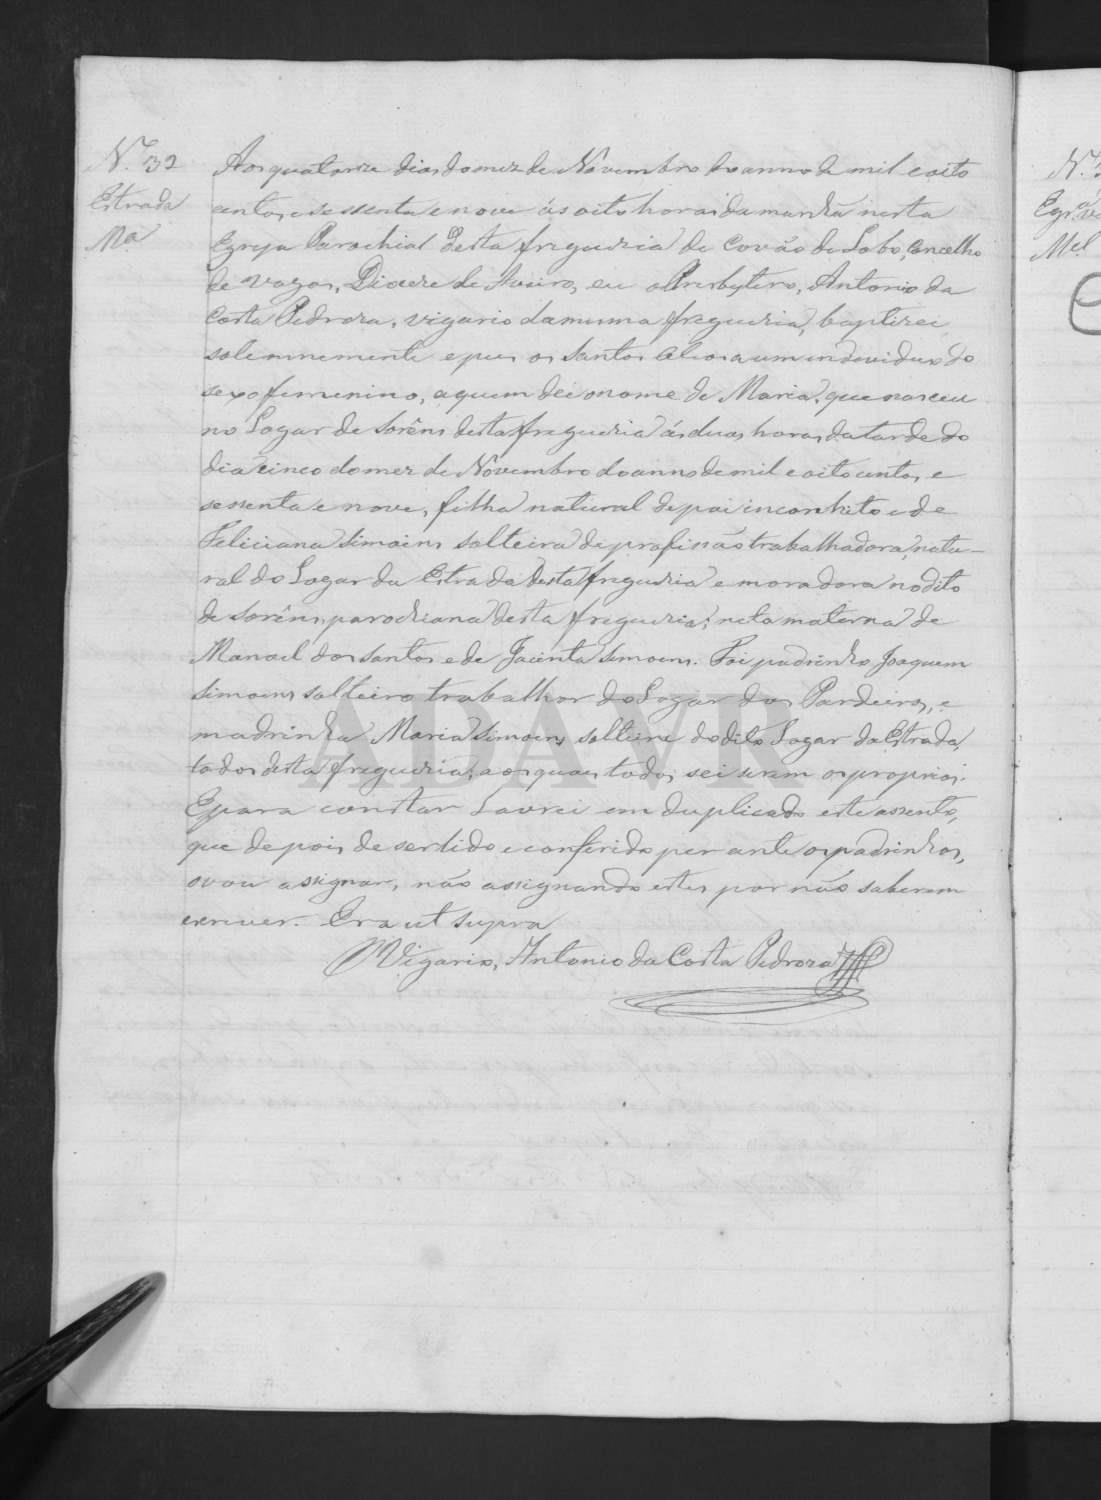 N.º 32
Estrada
Mª
Aos quatorze dias do mez de Novembro do anno de mil e oito
centos e sessenta e nove ás oito horas da manhã nesta
Egreja Parochial desta freguezia de Covão do Lobo, Concelho
de Vagos, Diocese de Aveiro, eu o Presbytero, Antonio da
Costa Pedroza, vigario da mesma freguezia, baptizei
solemnemente e puz os Santos Oleos a um individuo do
sexo femenino, a quem dei o nome de Maria, que nasceu
no Lugar de Sorêns desta freguezia ás duas horas da tarde do
dia cinco do mez de Novembro do anno de mil e oito centos e
sessenta e nove, filha natural de pai inconhito e de
Feliciana Simoens solteira de profissão trabalhadora, natu-
ral do Lugar da Estrada desta freguezia e moradora no dito
de Sorêns, parochiana desta freguezia; neta materna de
Manoel dos Santos e de Jacinta Simoens. Foi padrinho Joaquim
Simoens solteiro trabalhor do Lugar dos Pardieiros, e
madrinha Maria Simoens solteira do dito Lugar da Estrada,
todos desta freguezia, aos quaes todos sei serem os proprios.
E para constar lavrei em duplicado este assento,
que depois de ser lido e conferido per ante os padrinhos,
o vou assignar, não assignando estes por não saberem
escrever. Era ut supra
O Vigario, Antonio da Costa Pedroza
ADAVR
N.º 3
Mel